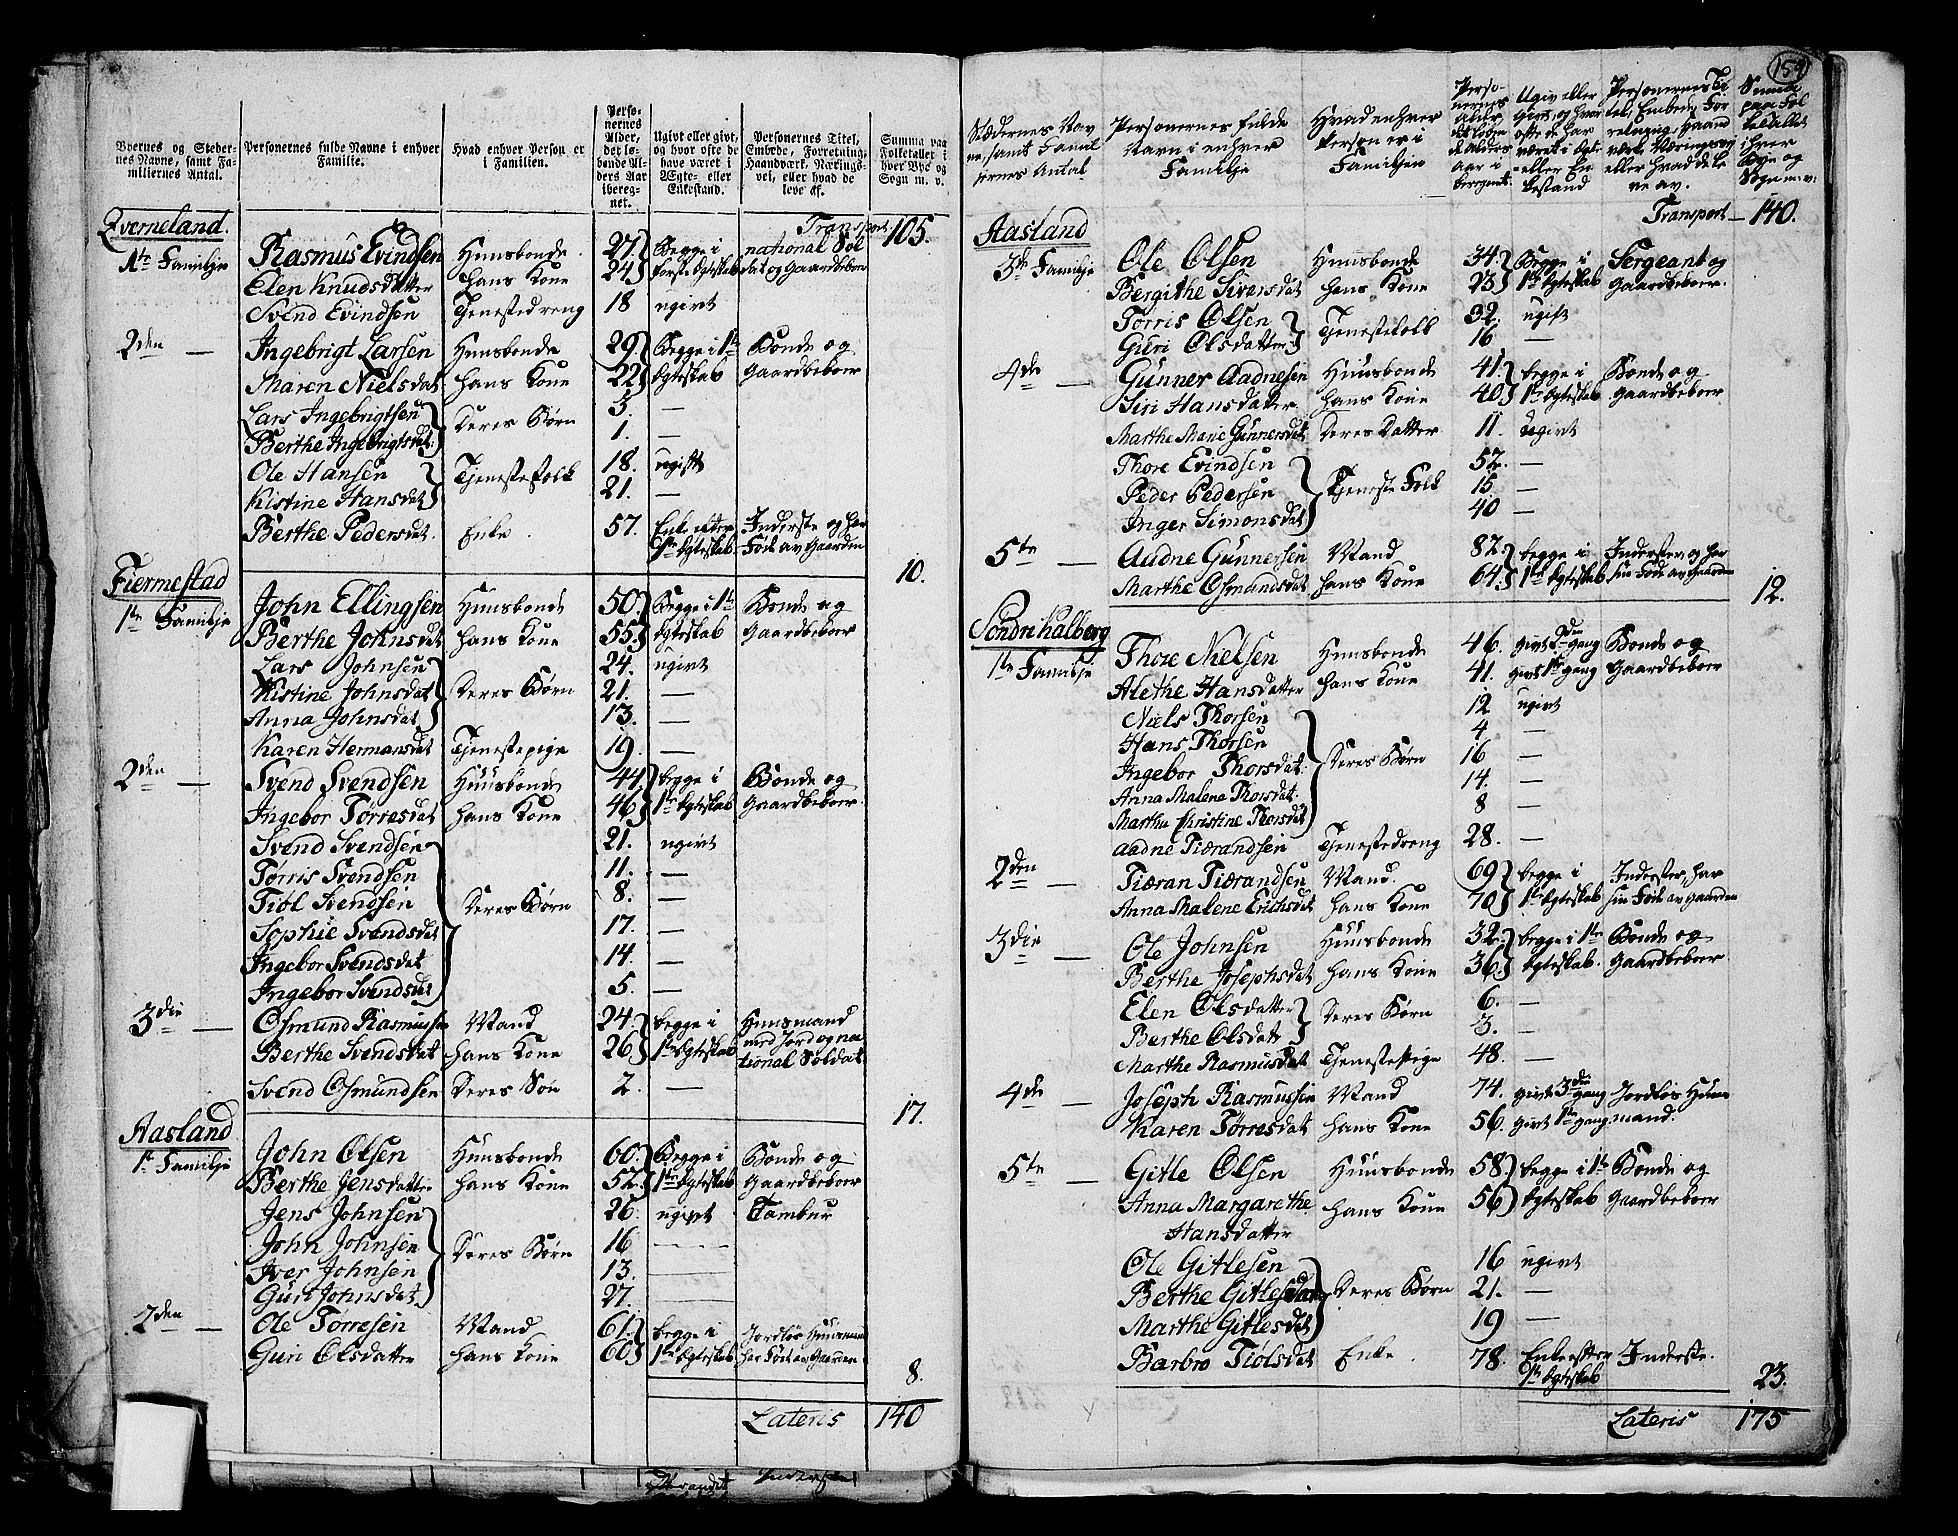 159
Byernes og Steder-
nes Navne, samt Fa-
miliernes Antal.
Personernes fulde Navne i enhver
Familie.
Hvad enhver Person er
i Familien.
Perso-
nernes
Alder,
det lø-
bende Al-
ders Aar
iberegnet.
Ugivt eller givt,
og hvor ofte de
have været i
Ægte- eller
Enkestand.
Personernes Titel,
Embede, Forretning,
Haandværk, Nærings-
vei, eller hvad de
leve af.
Summa paa
Folketallet i
hver Bye og
Sogn m. v.
Transport 105.
Qverneland.
1te Familie Rasmus Evindsen Huusbonde 27. Begge i national Sol
Elen Knudsdatter hans Kone 24 første Ægteskab dat og Gaardbeboer
Svend Evindsen Tjenestedreng 18 ugivt
2den — Ingebrigt Larsen Huusbonde 29 Begge i 1te Bonde og
Maren Nielsdat hans Kone 22 Ægteskab Gaardbeboer
Lars Ingebrigtsen
Berthe Ingebrigtsdat deres Børn 3. —
1. —
Ole Hansen 18. ugift
Kistine Hansdat Tjenestefolk 21. —
Berthe Pedersdat. Enke. 57. Enke efter Inderste og har
1te Ægteskab Føde av Gaarden
10.
Fiermestad
1te Familje John Ellingsen Huusbonde 50. Begge i 1te Bonde og
Berthe Johnsdat hans Kone 55 Ægteskab Gaardbeboer
Lars Johnsen 24. ugivt
Kistine Johnsdat deres Børn 21. —
Anna Johnsdat 13. —
Karen Hermansdat Tjenestepige 19. —
2den — Svend Svendsen Huusbonde 44. begge i Bonde og
Ingebor Tørresdat hans Kone 46 1te Ægteskab Gaardbeboer
Svend Svendsen 21. ugivt
Tørris Svendsen 11. —
Tiøl Svendsen deres Børn 8. —
Sophie Svendsdat 17. —
Ingebor Svendsdat 14. —
Ingebor Svendsdat 5. —
3die — Osmund Rasmussen Mand 24. begge i Huusmand
Berthe Svendsdat hans Kone 26 1te Ægteskab med Jord og na
tional Soldat
Svend Osmundsen deres Søn 2. —
17.
Aasland
1te Familje John Olsen Huusbonde 60. Begge i Bonde og
Berthe Jensdatter hans Kone 52. 1te Ægteskab Gaardbeboer
Jens Johnsen 26. ugivt Tambur
John Johnsen deres Børn 16 —
Iver Johnsen 13. —
Guri Johnsdat 27. —
2den — Ole Torresen Mand 61. begge i Jordløs Huusmand
Guri Olsdatter hans Kone 60 1te Ægteskab har Føde av Gaarden
8.
Lateris 140
Stædernes Nav
ne samt Famil
iernes Antal
Personernes fulde
Navn i enhver
Familje
Hvad enhver
Person er i
Familjen
Perso-
nernes
alder,
det løbe
de aldes
aar i
beregnet
Ugiv eller
givt, og hvor
ofte de har
været i Ægte
eller En
kestand
Personernes Ti
tel, Embede, For
retning, Haand
verk Næringsvej
eller hvad de le
ve av.
Summa
paa Fol
ketallet
i hver
Bye og
Sogn m: v:
Transport — 140.
Aasland
3de Familje Ole Olsen Huusbonde 34. Begge i Sergeant og
Bergithe Siversdat hans Kone 23 1te Ægteskab Gaardbeboer.
Torris Olsen 32. ugift
Guri Olsdatter Tjenestefolk 16 —
4de — Gunner Aadnesen Huusbonde 41. begge i Bonde og
Siri Hansdatter hans Kone 40 1te Ægteskab Gaardbeboer
Marthe Marie Gunnersdat deres datter 11. ugivt
Thore Evindsen 52. —
Peder Pedersen Tjeneste Folk 15 —
Inger Simonsdat 40 —
5te — Aadne Gunnersen Mand 82. begge i Inderster og har
Marthe Osmundsdat hans Kone 64. 1te Ægteskab sin Føde av Gaarden
12.
Sondre Kalberg
1te Familje Thore Nielsen Huusbonde 46. givt 2den gang Bonde og
Alethe Hansdatter hans Kone 41. givt 1te gang Gaardbeboer
Niels Thorsen 12 ugivt
Hans Thorsen 4 —
Ingebor Thorsdat. deres Børn 16 —
Anna Malena Thorsdat. 14. —
Martha Christine Thorsdat 8 —
Aadne Tiærandsen Tjenestedreng 28. —
2den — Tiæran Tiærandsen Mand. 69 begge i Inderster, har
Anna Malene Erichsdat hans Kone 70 1te Ægteskab sin Føde av Gaarden
3die — Ole Johnsen Huusbonde 32. begge i 1te Bonde og
Berthe Josephsdat hans Kone 36 Ægteskab. Gaardbeboer
Elen Olsdatter 6. —
Berthe Olsdatt deres Børn 3. —
Marthe Rasmusdat Tjenestepige 48. —
4de — Joseph Rasmussen Mand 74. givt 3die gang Jordløs Huus
Karen Torresdat hans Kone 56. givt 1te gang. mand.
5te — Gitle Olsen Huusbonde 58 begge i 1te Bonde og
Anna Margarethe hans Kone 56 Ægteskab Gaardbeboer
Hansdatter
Ole Gitlesen 16 ugivt
Berthe Gitlesdat deres Børn 21. —
Marthe Gitlesdat 19 —
Barbro Tiølsdat Enke. 78. Enke efter Inderste.
1te Ægteskab
23.
Lateris 175